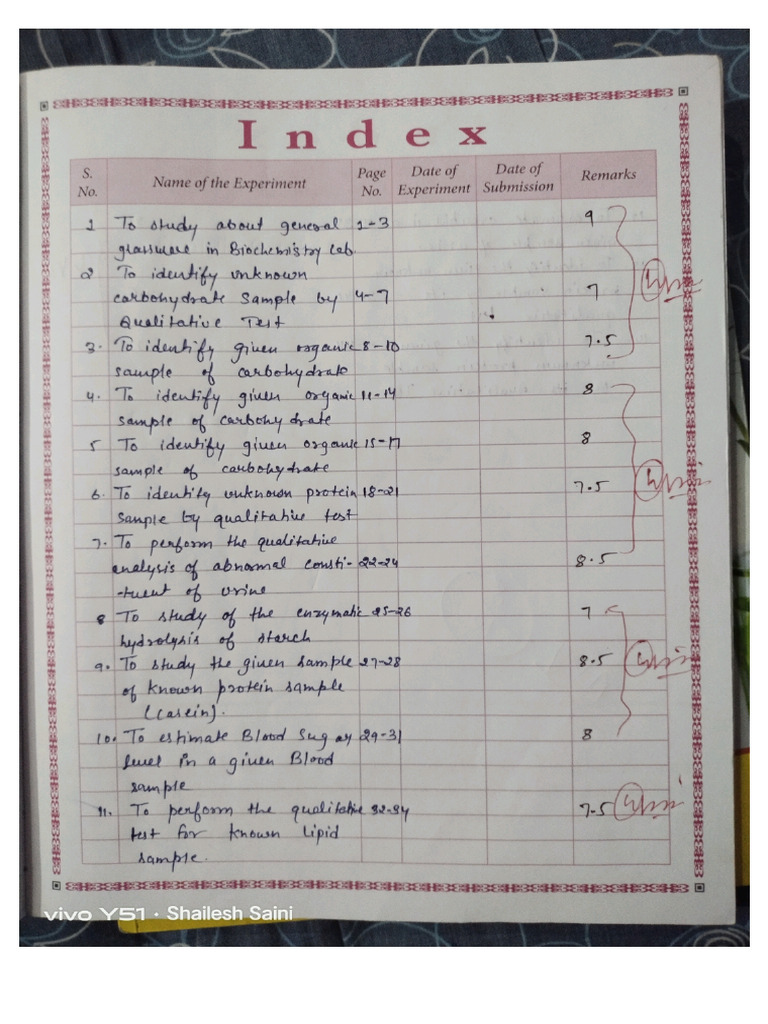 Index
S. No. Name of the Experiment Page No. Date of Experiment Date of Submission Remarks
1 To study about general 1-3 9
glassware in Biochemistry Lab
2 To identify unknown
carbohydrate sample by 4-7 7
Qualitative Test
3. To identify given organic 8-10 7.5
sample of carbohydrate
4. To identify given organic 11-14 8
sample of carbohydrate
5 To identify given organic 15-17 8
sample of carbohydrate
6. To identify unknown protein 18-21 7.5
sample by qualitative test
7. To perform the qualitative
analysis of abnormal consti- 22-24 8.5
-tuent of urine
8 To study of the enzymatic 25-26 7
hydrolysis of starch
9. To study the given sample 27-28 8.5
of known protein sample
(casein).
10. To estimate Blood Sugar 29-31 8
level in a given Blood
sample
11. To perform the qualitative 32-34 7.5
test for known lipid
sample.
vivo Y51 · Shailesh Saini